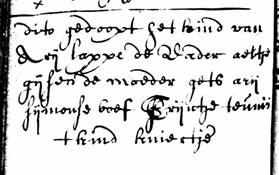 dito gedoopt het kind van
Arij lappe de Vader aeltie
gijsen de moeder gets arij
sijmonse boef Trijntie teunis
t kind kniertje